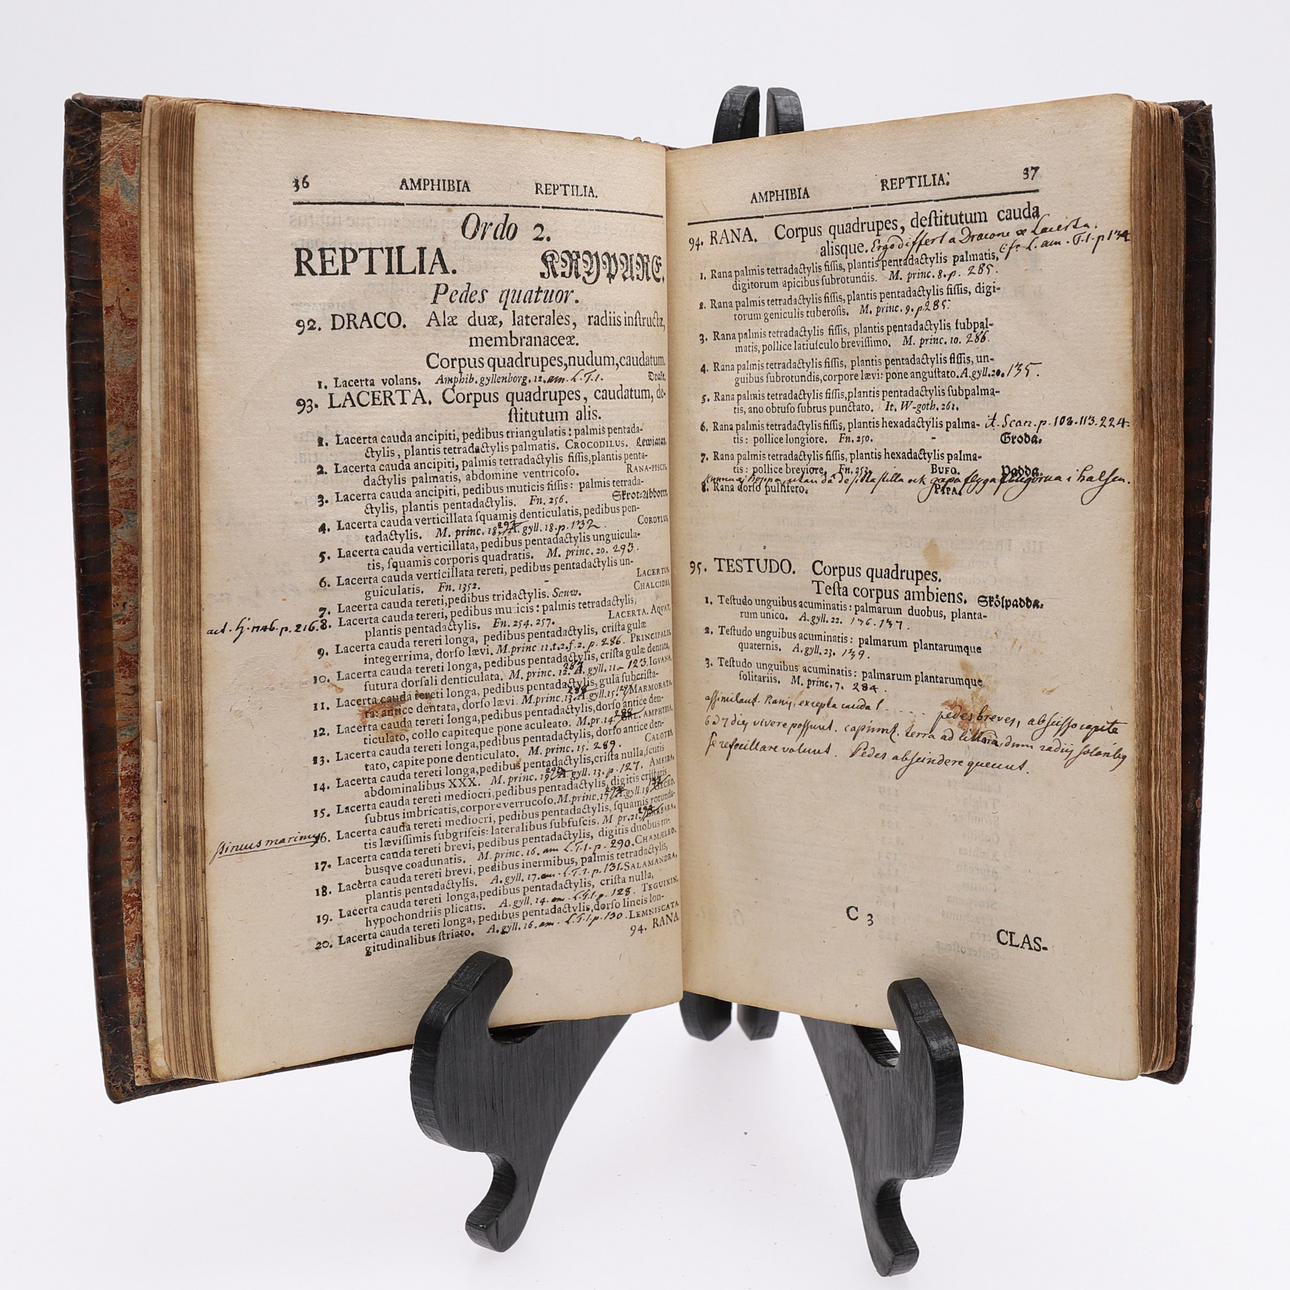 36 AMPHIBIA REPTILIA.
Ordo 2.
REPTILIA. KRYPARE.
Pedes quatuor.
92. DRACO. Alæ duæ, laterales, radiis inſtructæ,
membranaceæ.
Corpus quadrupes, nudum, caudatum.
1. Lacerta volans. Amphib. gyllenborg. 12. am. L.T.1. Drake.
93. LACERTA. Corpus quadrupes, caudatum, de-
ſtitutum alis.
1. Lacerta cauda ancipiti, pedibus triangulatis: palmis pentada-
ctylis, plantis tetradactylis palmatis. CROCODILUS. Lewiatan.
2. Lacerta cauda ancipiti, palmis tetradactylis fiſſis, plantis penta-
dactylis palmatis, abdomine ventricoſo. RANA-PISCIS.
3. Lacerta cauda ancipiti, pedibus muticis fiſſis: palmis tetrada-
ctylis, plantis pentadactylis. Fn. 256. Skrot-Abborre.
4. Lacerta cauda verticillata ſquamis denticulatis, pedibus pen-
tadactylis. M. princ. A. gyll. 18. p. 132. CORDYLUS.
5. Lacerta cauda verticillata, pedibus pentadactylis unguicula-
tis, ſquamis corporis quadratis. M. princ. 20. 293.
6. Lacerta cauda verticillata tereti, pedibus pentadactylis un-
guiculatis. Fn. 1352. - LACERTUS.
7. Lacerta cauda tereti, pedibus tridactylis. Column. CHALCIDES.
act. 1746. p. 216. 8. Lacerta cauda tereti, pedibus muticis: palmis tetradactylis,
plantis pentadactylis. Fn. 254. 257. LACERTA. AQUAT.
9. Lacerta cauda tereti longa, pedibus pentadactylis, criſta gulæ
integerrima, dorſo lævi. M. princ. 11. t. 2. f. 2. p. 286. PRINCIPALIS.
10. Lacerta cauda tereti longa, pedibus pentadactylis, criſta gulæ dentata,
ſutura dorſali denticulata. M. princ. 12. A. gyll. 11. 123. IGUANA.
11. Lacerta cauda tereti longa, pedibus pentadactylis, gula ſubcriſta-
ta: antice dentata, dorſo lævi. M. princ. 13. A. gyll. 15. MARMORATA.
12. Lacerta cauda tereti longa, pedibus pentadactylis, dorſo antice den-
ticulato, collo capiteque pone aculeato. M. pr. 14. AMPHIBIA.
13. Lacerta cauda tereti longa, pedibus pentadactylis, dorſo antice den-
tato, capite pone denticulato. M. princ. 15. 289. CALOTES.
14. Lacerta cauda tereti longa, pedibus pentadactylis, criſta nulla, ſcutis
abdominalibus XXX. M. princ. A. gyll. 13. p. 127. AMEIRA.
15. Lacerta cauda tereti mediocri, pedibus pentadactylis, digitis criſtatis
ſubtus imbricatis, corpore verrucoſo. M. princ. 17. A. gyll. 19.
Stincus marinus 16. Lacerta cauda tereti mediocri, pedibus pentadactylis, ſquamis rotunda-
tis læviſſimis ſubgriſeis: lateralibus ſubfuſcis. M. pr. 21.
17. Lacerta cauda tereti brevi, pedibus pentadactylis, digitis duobus tri-
busque coadunatis. M. princ. 16. am. L.T.1. p. 290. CHAMÆLEO.
18. Lacerta cauda tereti brevi, pedibus inermibus, palmis tetradactylis,
plantis pentadactylis. A. gyll. 17. am. L.T.1. p. 131. SALAMANDRA.
19. Lacerta cauda tereti longa, pedibus pentadactylis, criſta nulla,
hypochondriis plicatis. A. gyll. 14. am. L.T.1. p. 128. TEGUIXIN.
20. Lacerta cauda tereti longa, pedibus pentadactylis, dorſo lineis lon-
gitudinalibus ſtriato. A. gyll. 16. am. L.T.1. p. 130. LEMNISCATA.
94. RANA
AMPHIBIA REPTILIA. 37
94. RANA. Corpus quadrupes, deſtitutum cauda
alisque. Ergo differt a Dracone & Lacerta.
1. Rana palmis tetradactylis fiſſis, plantis pentadactylis palmatis,
digitorum apicibus ſubrotundis. M. princ. 8. p. 285.
2. Rana palmis tetradactylis fiſſis, plantis pentadactylis fiſſis, digi-
torum geniculis tuberoſis. M. princ. 9. p. 285.
3. Rana palmis tetradactylis fiſſis, plantis pentadactylis ſubpal-
matis, pollice latiuſculo breviſſimo. M. princ. 10. 286.
4. Rana palmis tetradactylis fiſſis, plantis pentadactylis fiſſis, un-
guibus ſubrotundis, corpore lævi: pone anguſtato. A. gyll. 20. 135.
5. Rana palmis tetradactylis fiſſis, plantis pentadactylis ſubpalma-
tis, ano obtuſo ſubtus punctato. It. W-goth. 261.
6. Rana palmis tetradactylis fiſſis, plantis hexadactylis palma- it. Scan. p. 108. 113. 224.
tis: pollice longiore. Fn. 250. - Groda.
7. Rana palmis tetradactylis fiſſis, plantis hexadactylis palma-
tis: pollice breviore. Fn. 253. BUFO. Padda.
8. Rana dorſo puſtifero. PIPA.
95. TESTUDO. Corpus quadrupes.
Teſta corpus ambiens. Sköldpadda.
1. Teſtudo unguibus acuminatis: palmarum duobus, planta-
rum unico. A. gyll. 22. 136. 137.
2. Teſtudo unguibus acuminatis: palmarum plantarumque
quaternis. A. gyll. 23. 139.
3. Teſtudo unguibus acuminatis: palmarum plantarumque
ſolitariis. M. princ. 7. 284.
aſſimilant. Ranis, excepta cauda! ..... pedes breves, absciſſo capite
6 a 7 dies vivere poſſunt. terra ad littora, dum radiis ſolaribus
ſe refocillare volunt. Pedes abſcindere queunt.
C 3
CLAS-